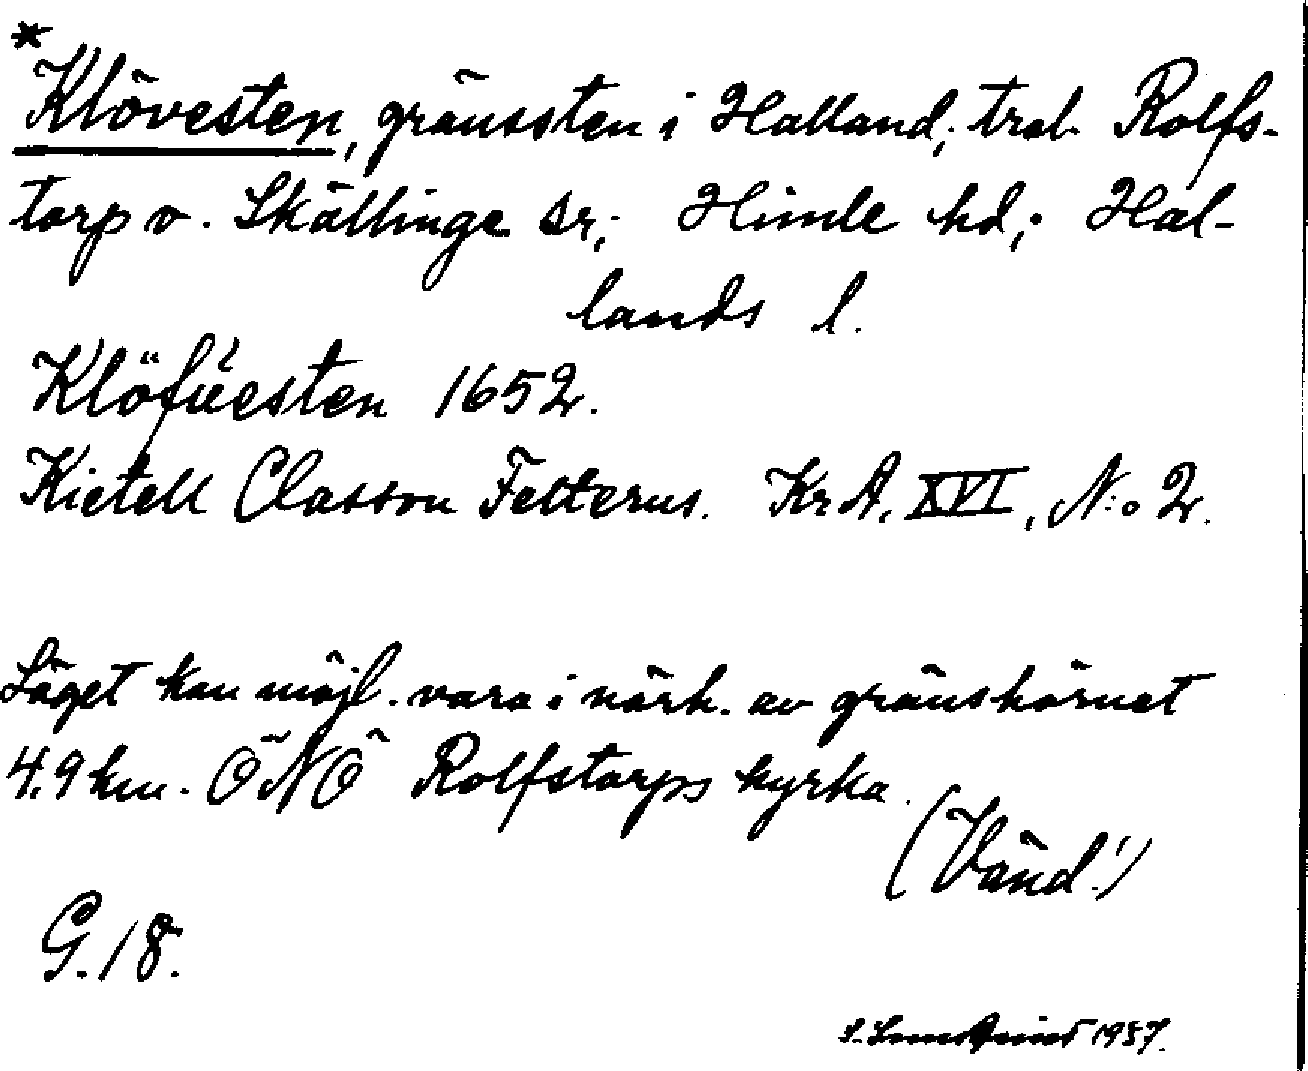 *
Klövesten, gränssten i Halland; trol. Rolfs-
torp o. Skällinge sr; Himle hd; Hal-
lands l.
Klöfüesten 1652.
Kietell Classon Felterus. KrA, XVI, N:o 2.
Läget kan möjl. vara i närh. av gränshörnet
4.9 km. ÖNÖ Rolfstorps kyrka.
(Vänd!)
G.18.
1957.